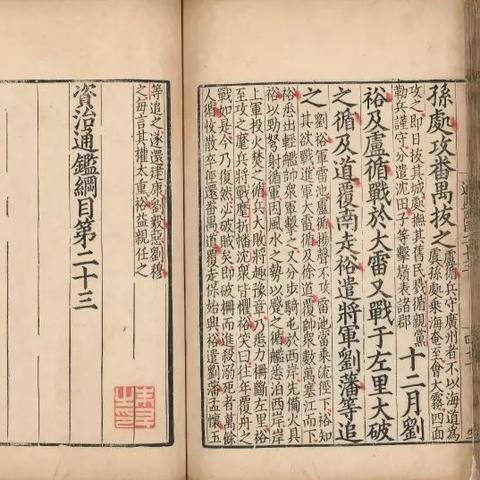 孫處攻番禺拔之
盧循兵守廣州者不以海道為
虞孫處乘海奄至會大霧四面
攻之即日拔其城處撫其舊民戮循親黨
勒兵謹守分遣沈田子等擊嶺表諸郡
十二月劉
裕及盧循戰於大雷又戰于左里大破
之循及道覆南走裕遣將軍劉藩等追
之
劉裕軍雷池盧循揚聲不攻雷池當乘流徑下裕知
其欲戰進軍大雷循及徐道覆帥衆數萬塞江而下
裕悉出輕艦帥衆軍擊之又分步騎屯於西岸先備火具
裕以勁弩射循軍因風水之勢以蹙之循艦悉泊西岸岸
上軍投火焚之循兵大敗將趣豫章乃悉力柵斷左里裕
至攻之麾兵將戰麾折幡沈衆皆懼裕笑曰往年覆舟之
戰如是今乃復然必破賊矣即破柵而進殺溺死者萬餘
人循收散卒徑還番禺道覆走保始興裕遣劉藩孟懷玉
等追之遂還建康劉毅惡劉穆
之每言其權太重裕益親任之
資治通鑑綱目第二十三